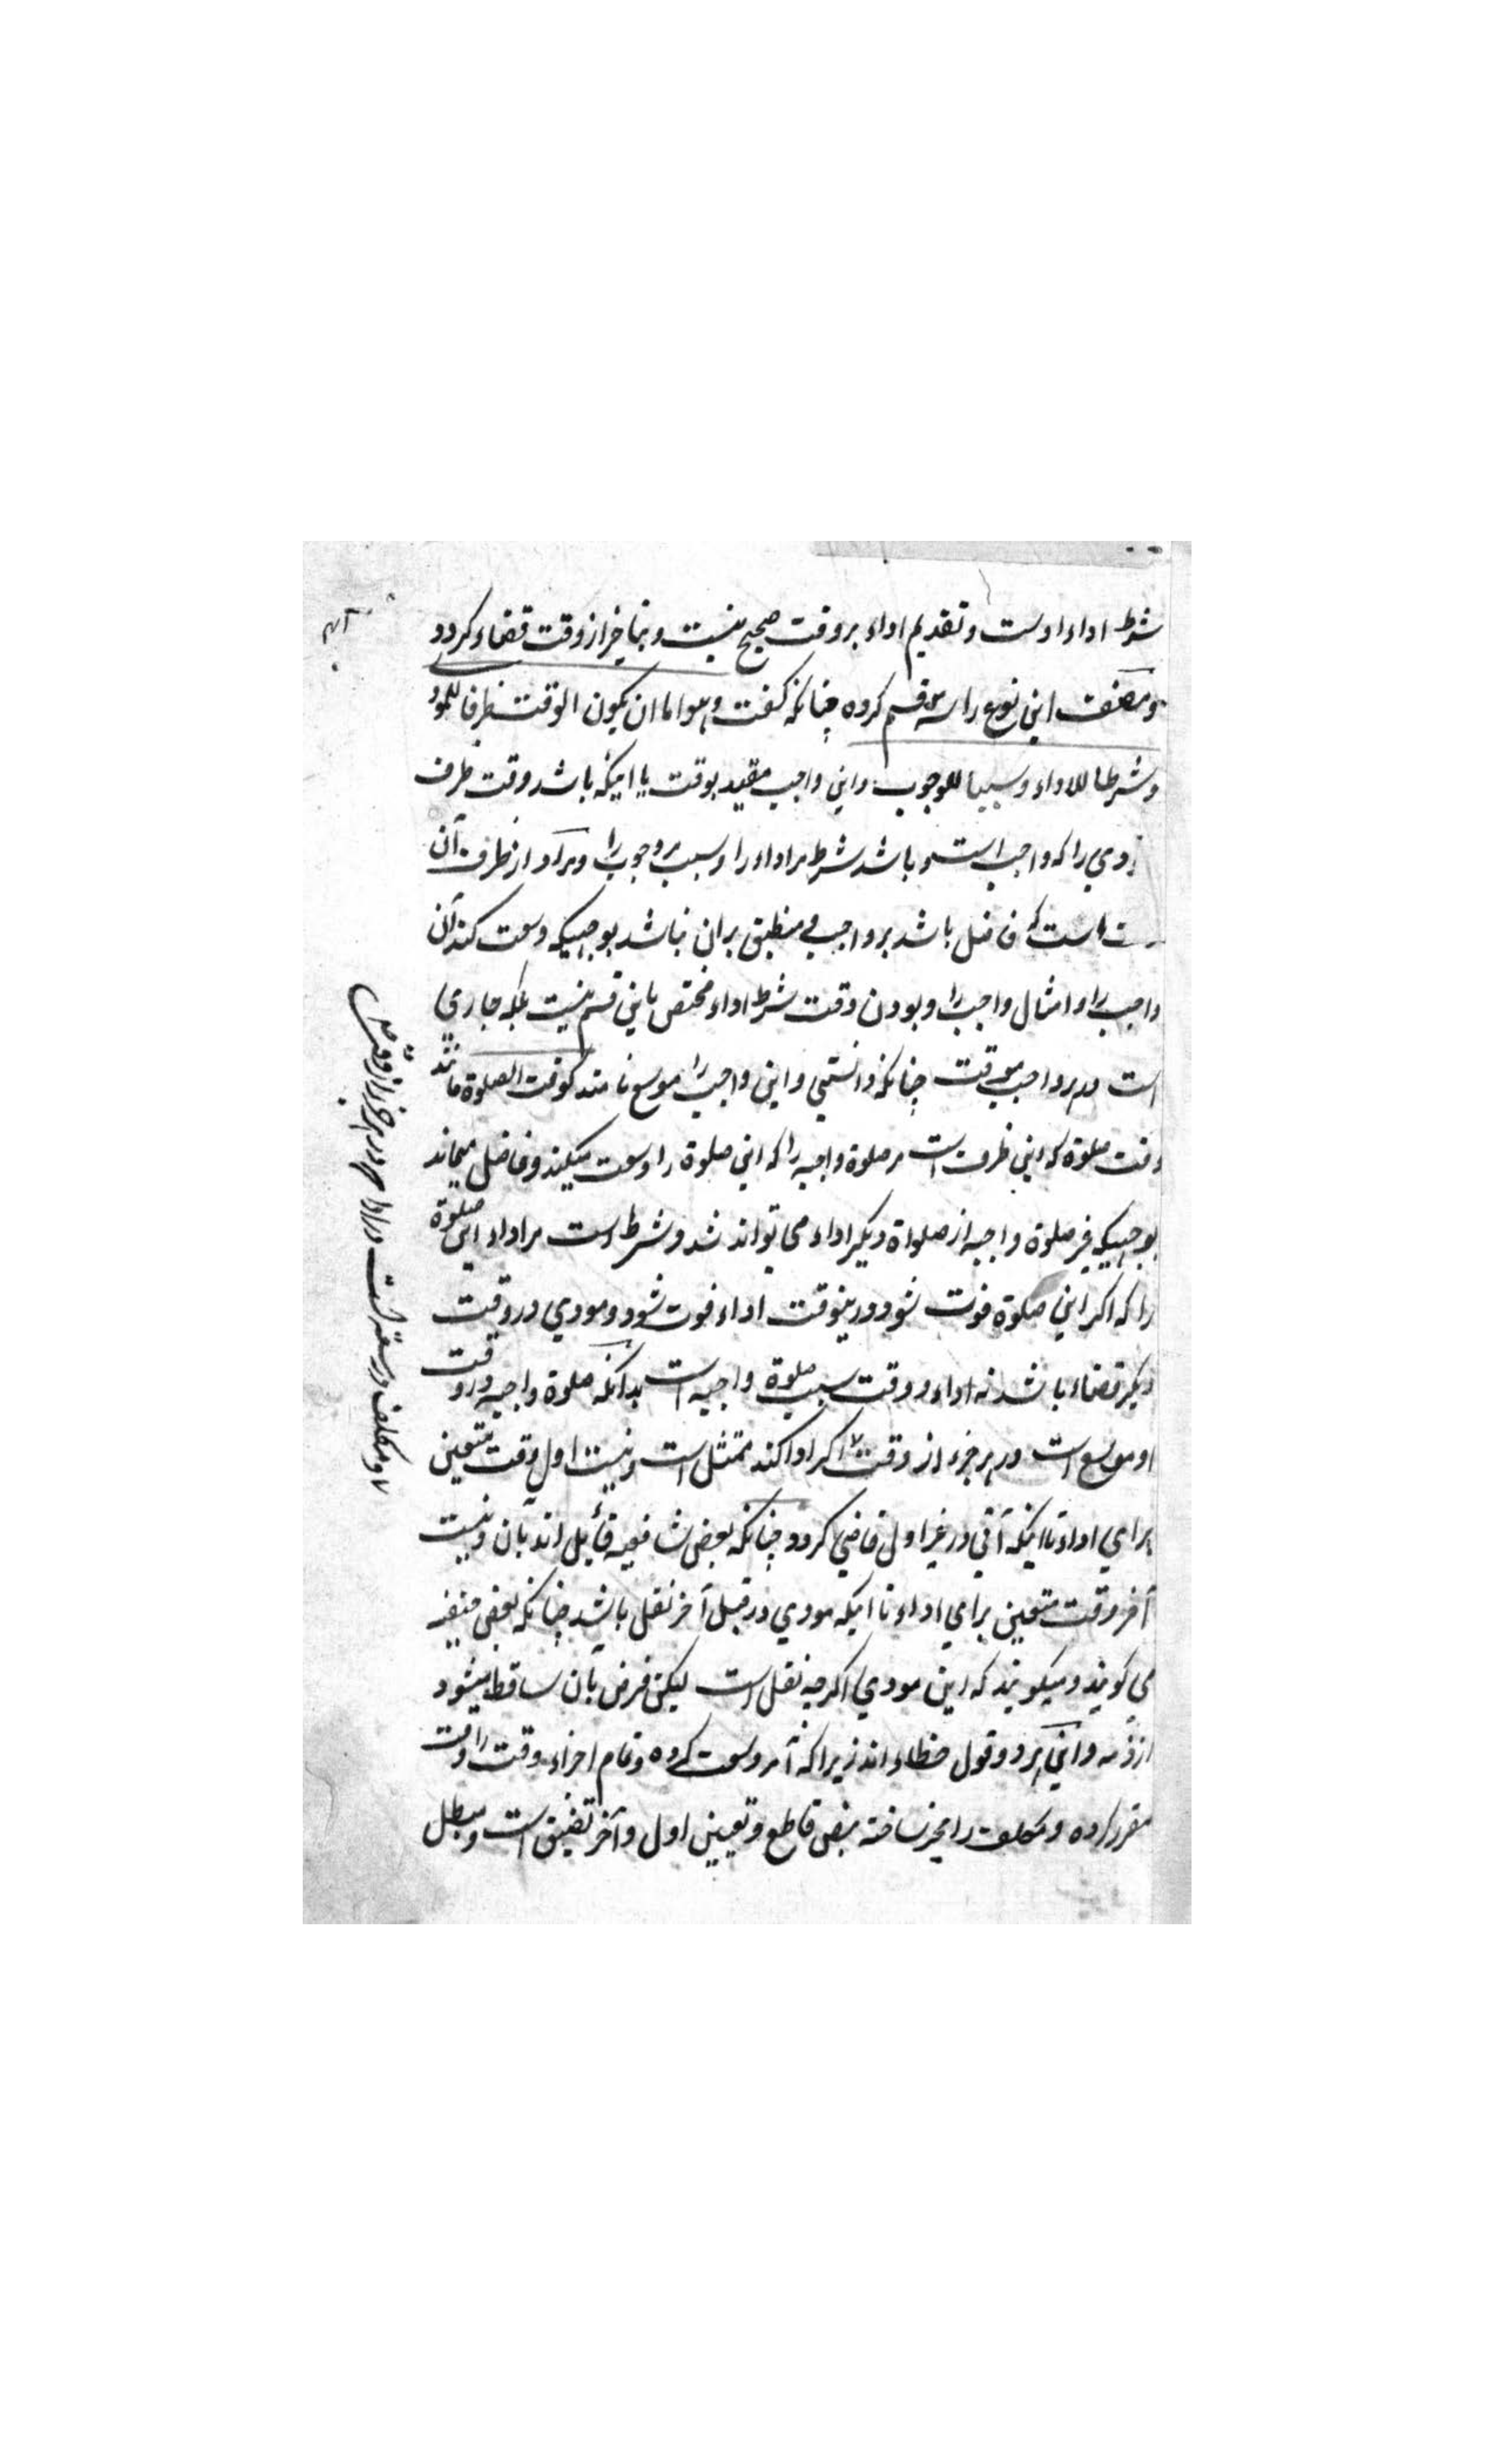 شرط اداء اوست و تقدیم اداء بر وقت صحیح نیست و بتاخیر از وقت قضاء گردد
و مصنف این نوع را سه قسم کرده چنانکه گفت وهو اما ان یکون الوقت ظرفا للمود
و شرطا للاداء و سببا للوجوب و این واجب مقید بوقت یا اینکه باشد وقت ظرف
ودي را که واجب است و باشد شرط مر اداء را و سبب مر وجوب را و مراد از ظرف آن
است که فاضل باشد بر واجب و منطبق بران نباشد بوجهیکه وسعت کند آن
واجب را و امثال واجب را و بودن وقت شرط اداء مختص باین قسم نیست بلکه جاري
است در هر واجب موقت چنانکه دانستی و این واجب را موسع نامند کوقت الصلوة مانند
وقت صلوة که این ظرف است مر صلوة واجبه را که این صلوة را وسعت میکند و فاضل میماند
بوجهیکه غیر صلوة واجبه از صلواة دیگر اداء می تواند شد و شرط است مر اداء این صلوة
را که اگر این صلوة فوت شود درینوقت اداء فوت شود و مودي در وقت
دیگر قضاء باشد نه اداء و وقت سبب صلوة واجبه است بدانکه صلوة واجبه در وقت
او موسع است در هر جزء از وقت اگر ادا کند ممتثل است و نیست اول وقت متعین
براي اداء تا اینکه آتی در غیر اول قاضي گردد چنانکه بعض شافعیه قائل اند بآن و نیست
آخر وقت متعین براي اداء تا اینکه مودي در قبل آخر نفل باشد چنانکه بعض حنفیه
می گویند و میگویند که این مودي اگرچه نفل است لیکن فرض بآن ساقط میشود
از ذمه و این هر دو قول خطاء اند زیراکه آمر وسعت کرده و تمام اجزاء وقت را وقت
مقرر کرده و مکلف را مخیر ساخته بنص قاطع و تعیین اول و آخر تضییق است و مبطل
و مکلف در سعه است در ادا در هر جزء از وقت